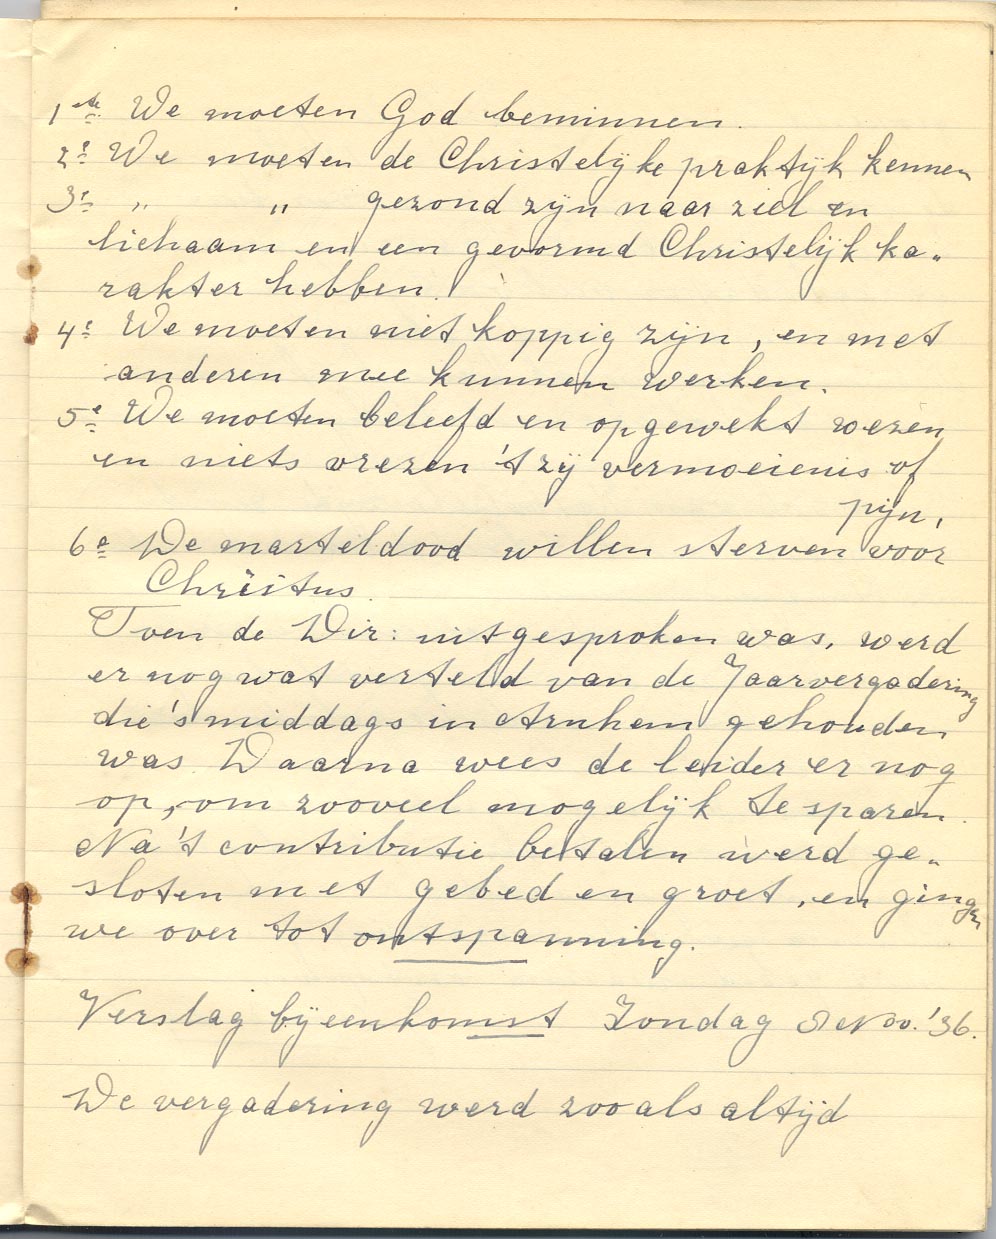 1ste We moeten God beminnen.
2e We moeten de Christelijke praktijk kennen
3e " " gezond zijn naar ziel en
lichaam en een gevormd Christelijk ka„
rakter hebben.
4e We moeten niet koppig zijn, en met
anderen mee kunnen werken.
5e We moeten beleefd en opgewekt wezen
en niets vrezen 't zij vermoeienis of
pijn.
6e De marteldood willen sterven voor
Christus.
Toen de Dir: uitgesproken was, werd
er nog wat verteld van de Jaarvergadering
die 's middags in Arnhem gehouden
was Daarna wees de leider er nog
op, om zooveel mogelijk te sparen.
Na 't contributie betalen werd ge„
sloten met gebed en groet, en gingen
we over tot ontspanning.
Verslag bijeenkomst Zondag 8 Nov. '36.
De vergadering werd zooals altijd